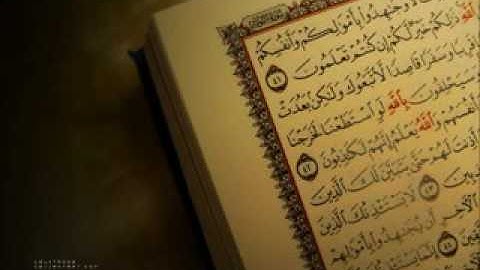 وَجَٰهِدُوا۟ بِأَمْوَٰلِكُمْ وَأَنفُسِكُمْ
ٱللَّهِ ذَٰلِكُمْ خَيْرٌ لَّكُمْ إِن كُنتُمْ تَعْلَمُونَ ٤١
قَرِيبًا وَسَفَرًا قَاصِدًا لَّٱتَّبَعُوكَ وَلَٰكِنۢ بَعُدَتْ
سَيَحْلِفُونَ بِٱللَّهِ لَوِ ٱسْتَطَعْنَا لَخَرَجْنَا
أَنفُسَهُمْ وَٱللَّهُ يَعْلَمُ إِنَّهُمْ لَكَٰذِبُونَ ٤٢
أَذِنتَ لَهُمْ حَتَّىٰ يَتَبَيَّنَ لَكَ ٱلَّذِينَ
٤٣ لَا يَسْتَـْٔذِنُكَ ٱلَّذِينَ
ٱلْءَاخِرِ أَن يُجَٰهِدُوا۟ بِأَمْوَٰلِهِمْ
٤٤ إِنَّمَا